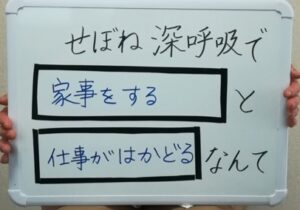 せぼね深呼吸で
家事をする と
仕事がはかどる なんて